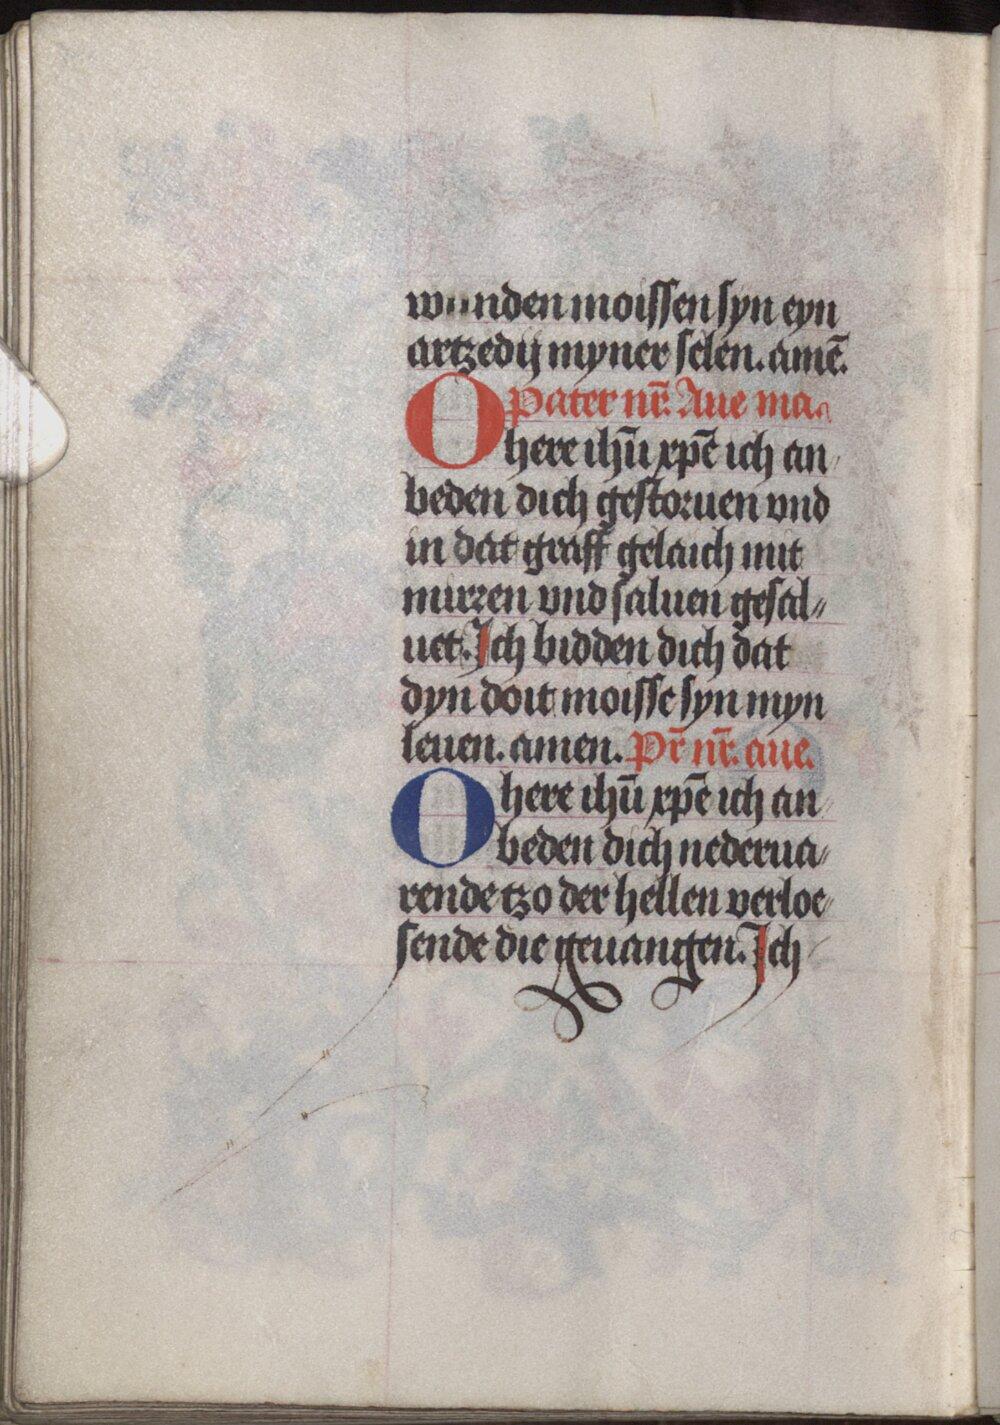 wunden moissen syn eyn
artzedij myner selen. amē.
Pater nr̄. Aue ma.
O here ihū xp̄e ich an
beden dich gestoruen vnd
in dat graff gelaich mit
mirren vnd saluen gesal〃
uet. Ich bidden dich dat
dyn doit moisse syn myn
leuen. amen. Pr̄ nr̄. aue.
O here ihū xp̄e ich an
beden dich nederua〃
rende tzo der hellen verloe〃
sende die geuangen. Ich